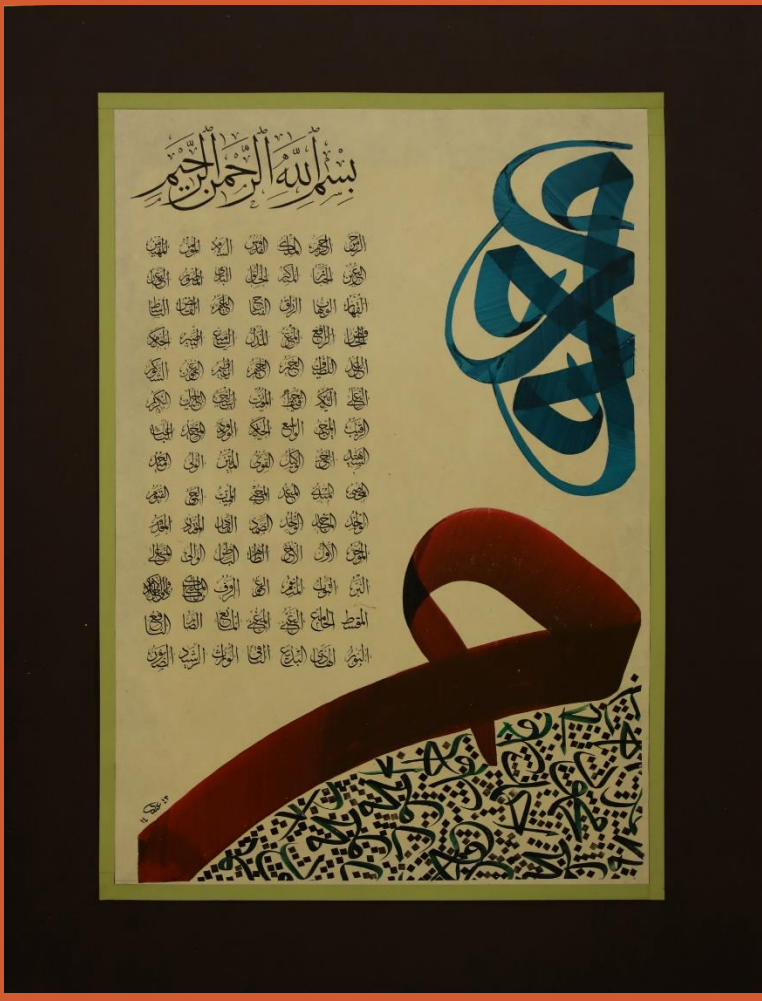 بِسْمِ اللهِ الرَّحْمٰنِ الرَّحِيْمِ
الرحمن الرحيم الملك القدوس السلام المؤمن المهيمن
العزيز الجبار المتكبر الخالق البارئ المصور الغفار
القهار الوهاب الرزاق الفتاح العليم القابض الباسط
الخافض الرافع المعز المذل السميع البصير الحكم
العدل اللطيف الخبير الحليم العظيم الغفور الشكور
العلي الكبير الحفيظ المقيت الحسيب الجليل الكريم
الرقيب المجيب الواسع الحكيم الودود المجيد الباعث
الشهيد الحق الوكيل القوي المتين الولي الحميد
المحصي المبدئ المعيد المحيي المميت الحي القيوم
الواجد الماجد الواحد الصمد القادر المقتدر المقدم
المؤخر الأول الآخر الظاهر الباطن الوالي المتعالي
البر التواب المنتقم العفو الرؤوف مالك الملك ذو الجلال والإكرام
المقسط الجامع الغني المغني المانع الضار النافع
النور الهادي البديع الباقي الوارث الرشيد الصبور